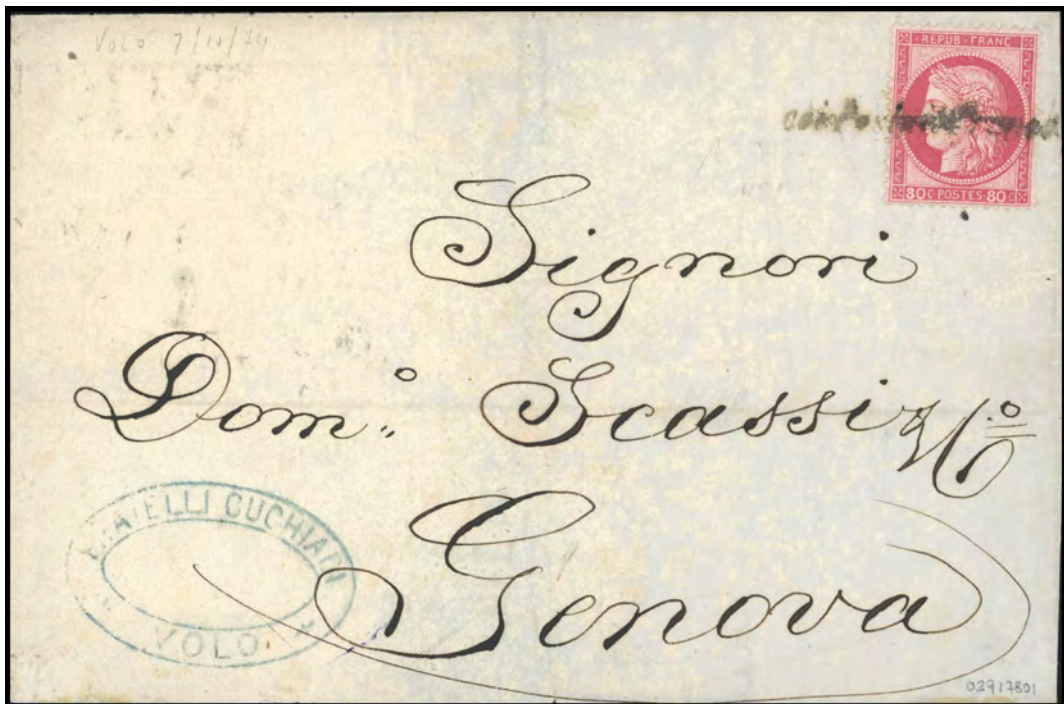 VOLO 7/10/74
REPUB·FRANC
80c POSTES 80c
Signori
Dom.º Scassi & Cº
Genova
FRATELLI CUCHIARI
VOLO
02917801